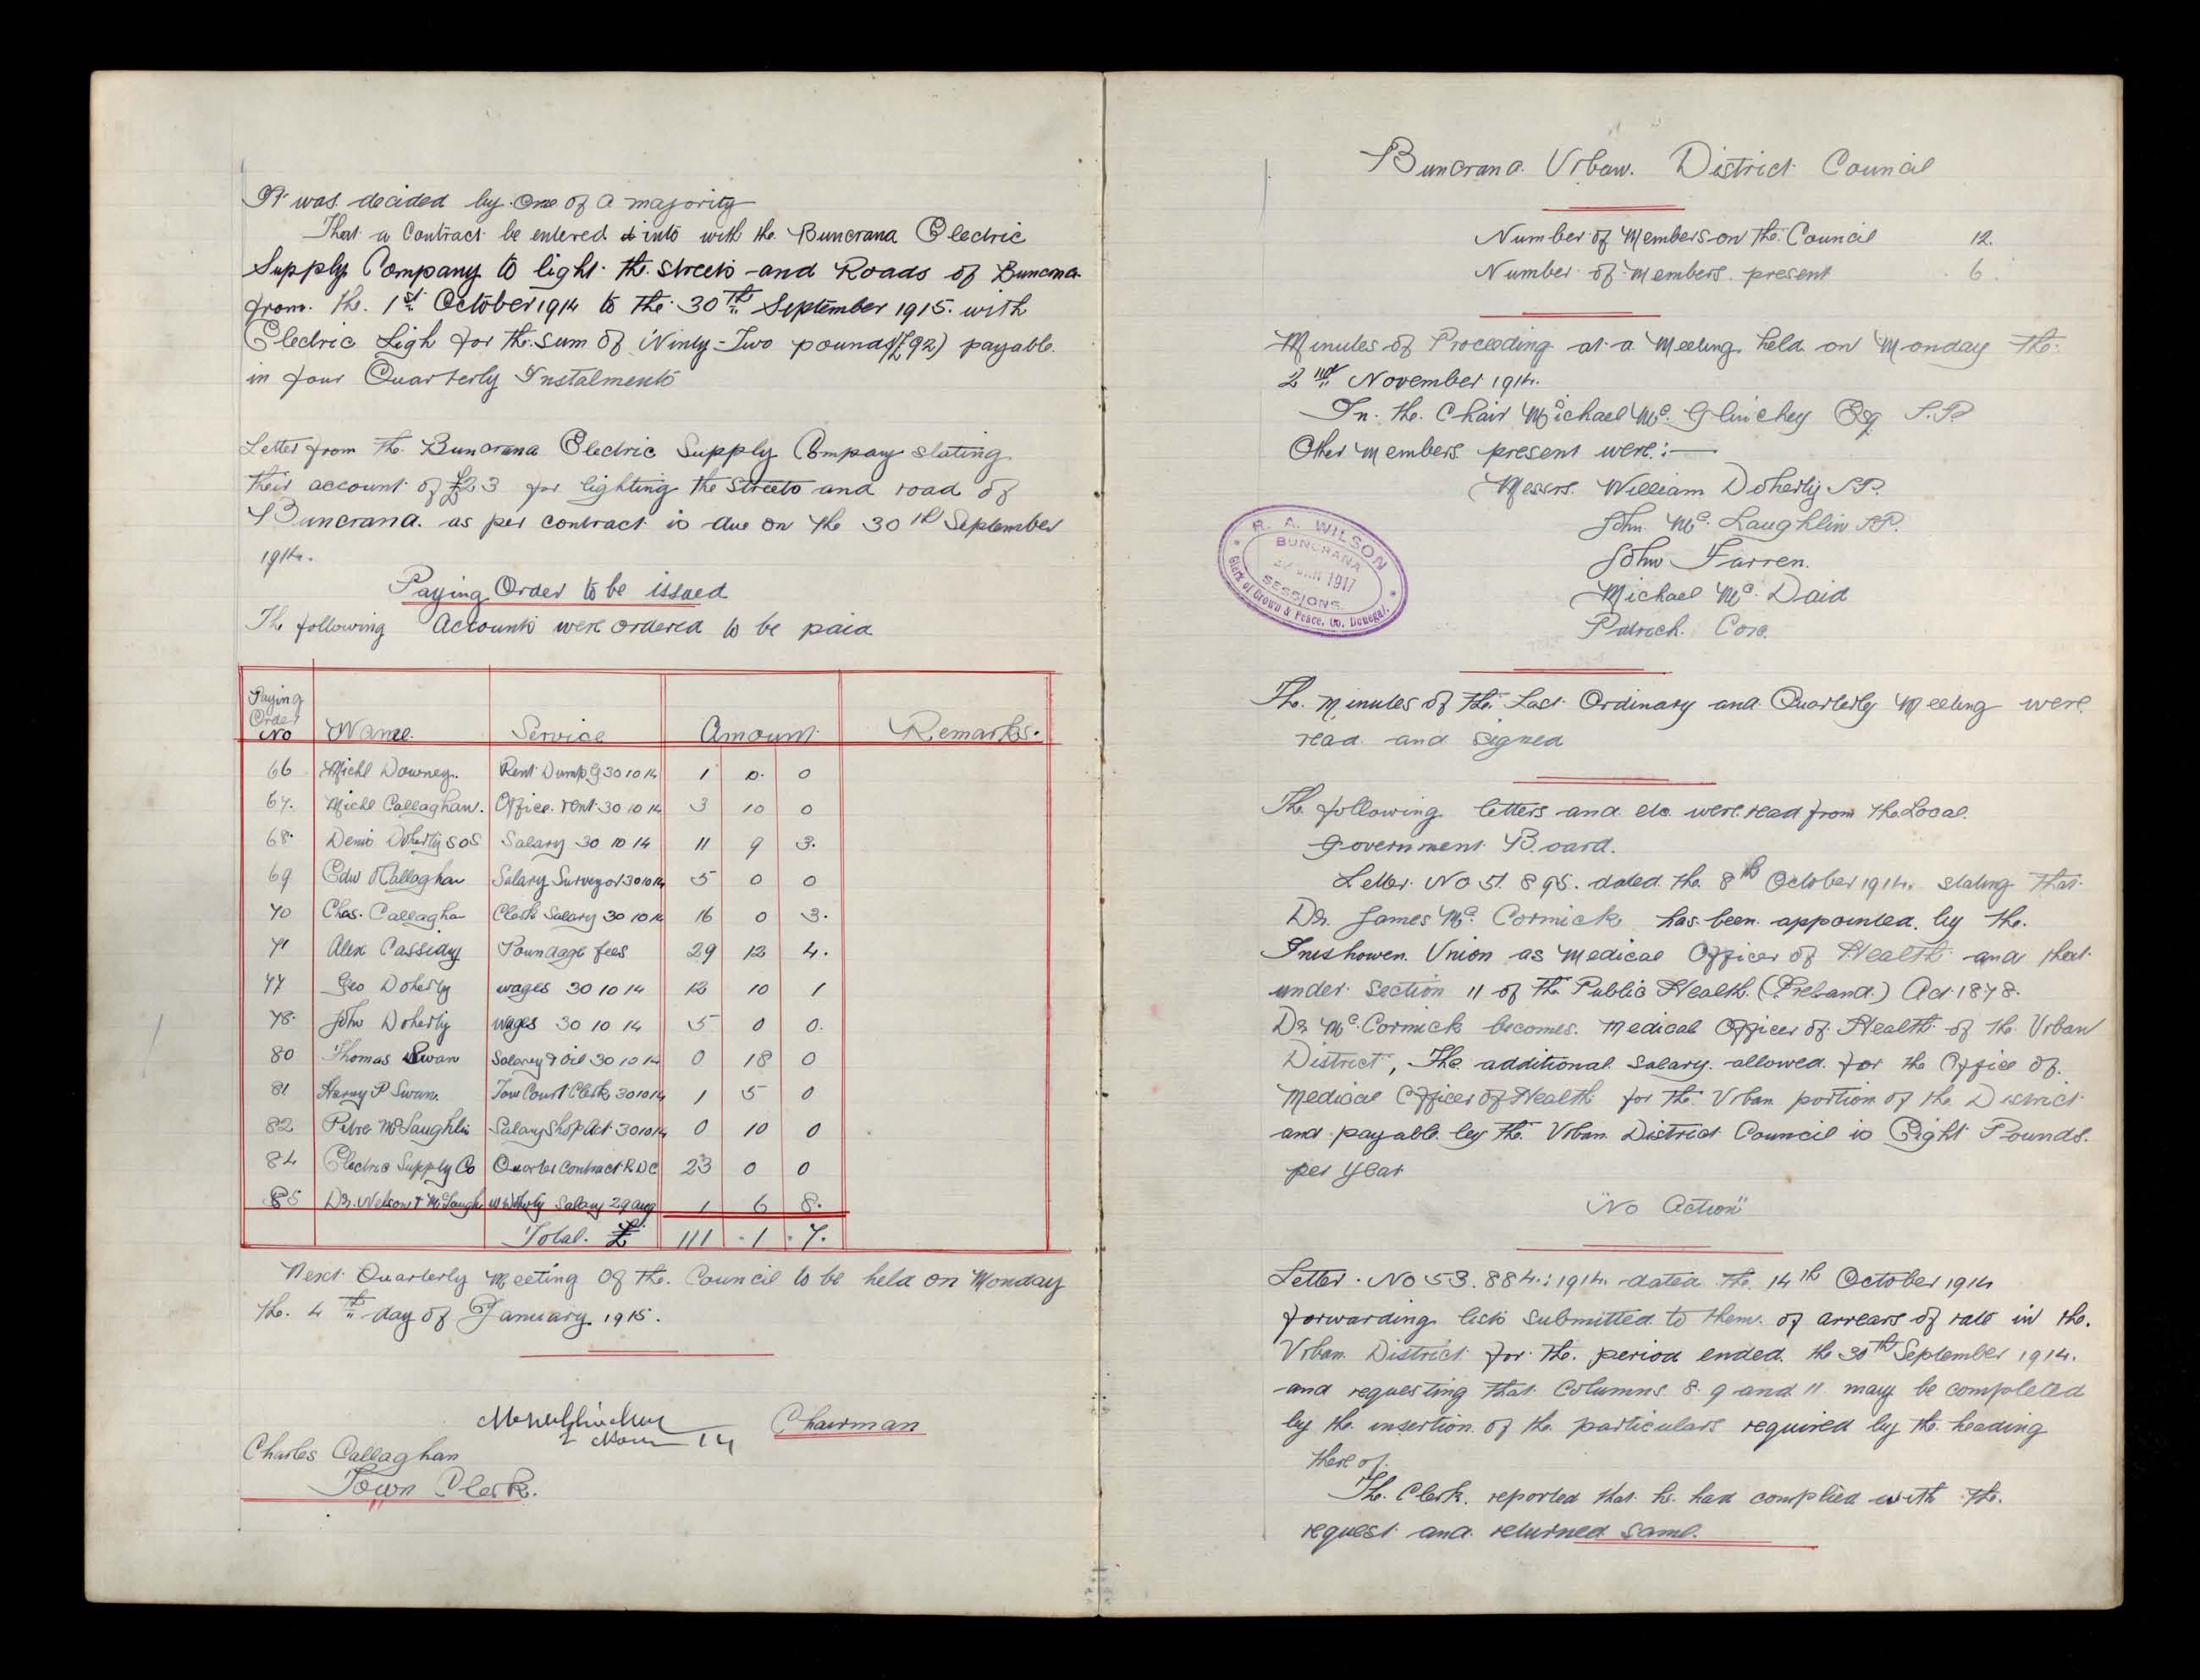 It was decided by one of a majority
That a Contract be entered into with the Buncrana Electric
Supply Company to light the streets and Roads of Buncrana
from the 1st October 1914 to the 30th September 1915 with
Electric Ligh for the sum of Ninty-Two pounds (£92) payable
in four Quarterly Instalments
Letter from the Buncrana Electric Supply Company stating
their account of £23 for lighting the streets and road of
Buncrana as per contract is due on the 30th September
1914.
Paying Order to be issued
The following Accounts were ordered to be paid
Paying Order No Name Service Amount Remarks.
66 Michl Downey. Rent Dump G 30 10 14 1 0 0
67. Michl Callaghan. Office rent 30 10 14 3 10 0
68. Denis Doherty SOS Salary 30 10 14 11 9 3.
69 Edw O'Callaghan Salary Surveyor 30 10 14 5 0 0
70 Chas. Callaghan Clerk Salary 30 10 14 16 0 3.
71 Alex Cassidy Poundage fees 29 12 4.
77 Geo Doherty wages 30 10 14 12 10 1
78. John Doherty wages 30 10 14 5 0 0.
80 Thomas Swan Salarey & Oil 30 10 14 0 18 0
81 Harry P Swan. Tow Court Clerk 30 10 14 1 5 0
82 McLaughlin Salary Shop Act 30 10 14 0 10 0
84 Electric Supply Co Quarter Contract 23 0 0
85 Dr. Nelson & McLaugh Salary 29 aug 1 6 8.
Total. £ 111 . 1 . 7.
Next Quarterly Meeting of the Council to be held on Monday
the 4th day of January 1915.
2 Nov 14 Chairman
Charles Callaghan
Town Clerk.
Buncrana Urban District Council
Number of Members on the Council 12.
Number of Members present 6.
Minutes of Proceeding at a Meeting held on Monday the
2nd November 1914.
In the Chair Michael McGlinchey Esq J.P.
Other members present were:—
Messrs. William Doherty J.P.
John McLaughlin J.P.
John Farren.
Michael McDaid
Patrick Coie
R. A. WILSON
BUNCRANA
JAN 1917
SESSIONS.
Clerk of Crown & Peace, Co. Donegal.
The Minutes of the Last Ordinary and Quarterly Meeting were
read and signed
The following letters and etc were read from the Local
Government Board.
Letter No 51.895. dated the 8th October 1914. stating that
Dr. James McCormick has been appointed by the
Inishowen Union as Medical Officer of Health and that
under Section 11 of the Public Health (Ireland) Act 1878.
Dr McCormick becomes Medical Officer of Health of the Urban
District, The additional Salary allowed for the Office of
Medical Officer of Health for the Urban portion of the District
and payable by the Urban District Council is Eight Pounds.
per year
"No Action"
Letter No 53.884:1914. dated the 14th October 1914
forwarding lists submitted to them of arrears of rate in the
Urban District for the period ended the 30th September 1914.
and requesting that Columns 8. 9 and 11 may be completed
by the insertion of the particulars required by the heading
there of.
The Clerk reported that he had complied with the
request and returned same.